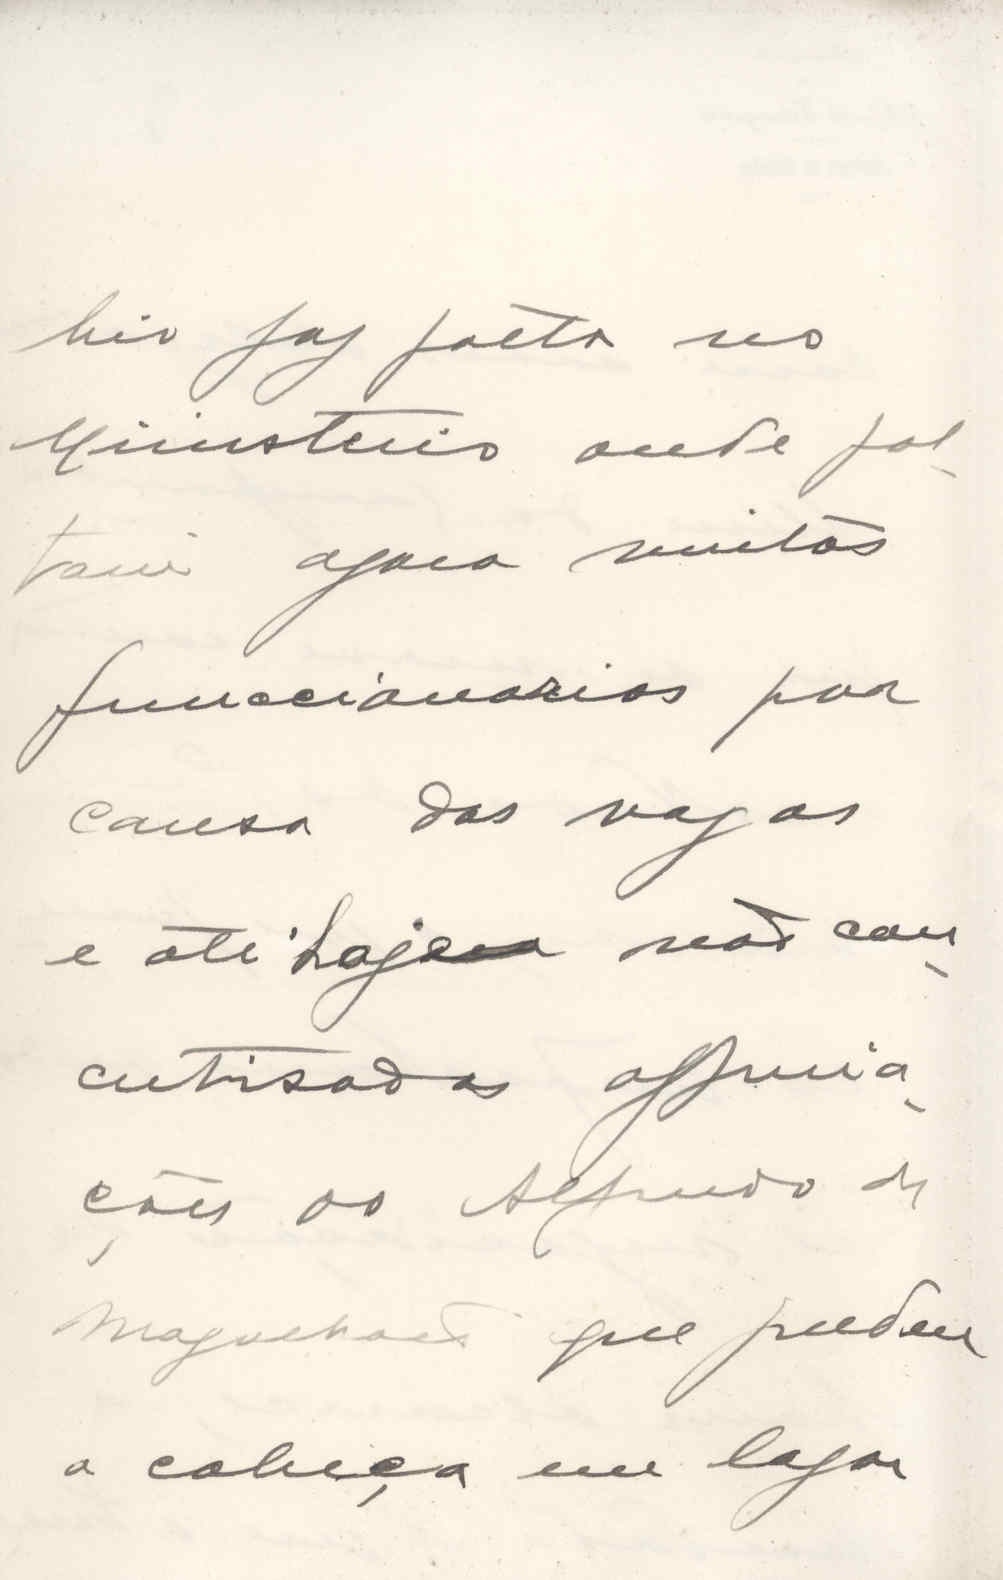 bio faz falta no
Ministerio onde fal-
tam agora muitos
funccionarios por
causa das vagas
e até hoje não con-
cretisadas
ções ao Alfredo de
Magalhães que
a cabeça em lagar